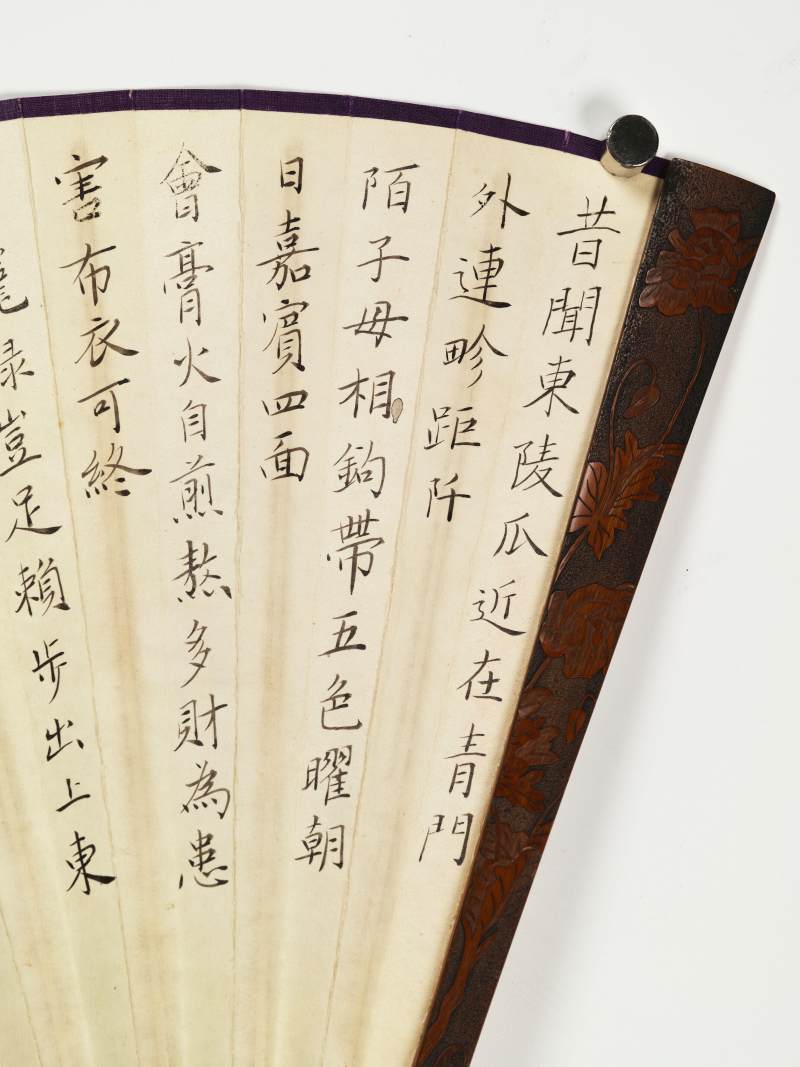 昔聞東陵瓜近在青門
外連畛距阡
陌子母相鉤帶五色曜朝
日嘉賓四面
會膏火自煎熬多財為患
害布衣可終
寵祿豈足賴步出上東